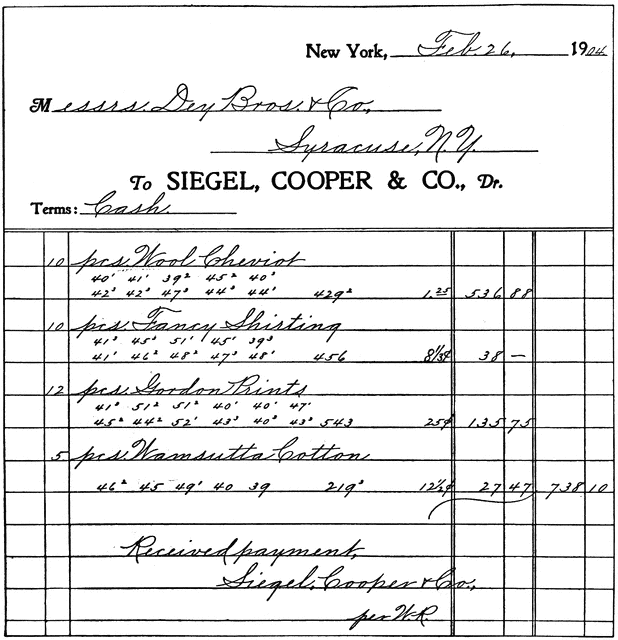 New York, Feb. 26, 1904
Messrs. Dey Bros. & Co.,
Syracuse, N.Y.
To SIEGEL, COOPER & CO., Dr.
Terms: Cash.
10 pcs. Wool Cheviot
40¹ 41¹ 39² 45² 40³
42³ 42³ 47³ 44³ 44¹ 429² 1.25 536 88
10 pcs. Fancy Shirting
41³ 45³ 51¹ 45¹ 39³
41¹ 46² 48² 47³ 48¹ 456 8⅓¢ 38 —
12 pcs. Gordon Prints
41³ 51² 51² 40¹ 40¹ 47¹
45² 44² 52¹ 43³ 40³ 43³ 543 25¢ 135 75
5 pcs. Wamsutta Cotton
46² 45 49¹ 40 39 219³ 12½¢ 27 47 738 10
Received payment,
Siegel, Cooper & Co.,
per W.R.